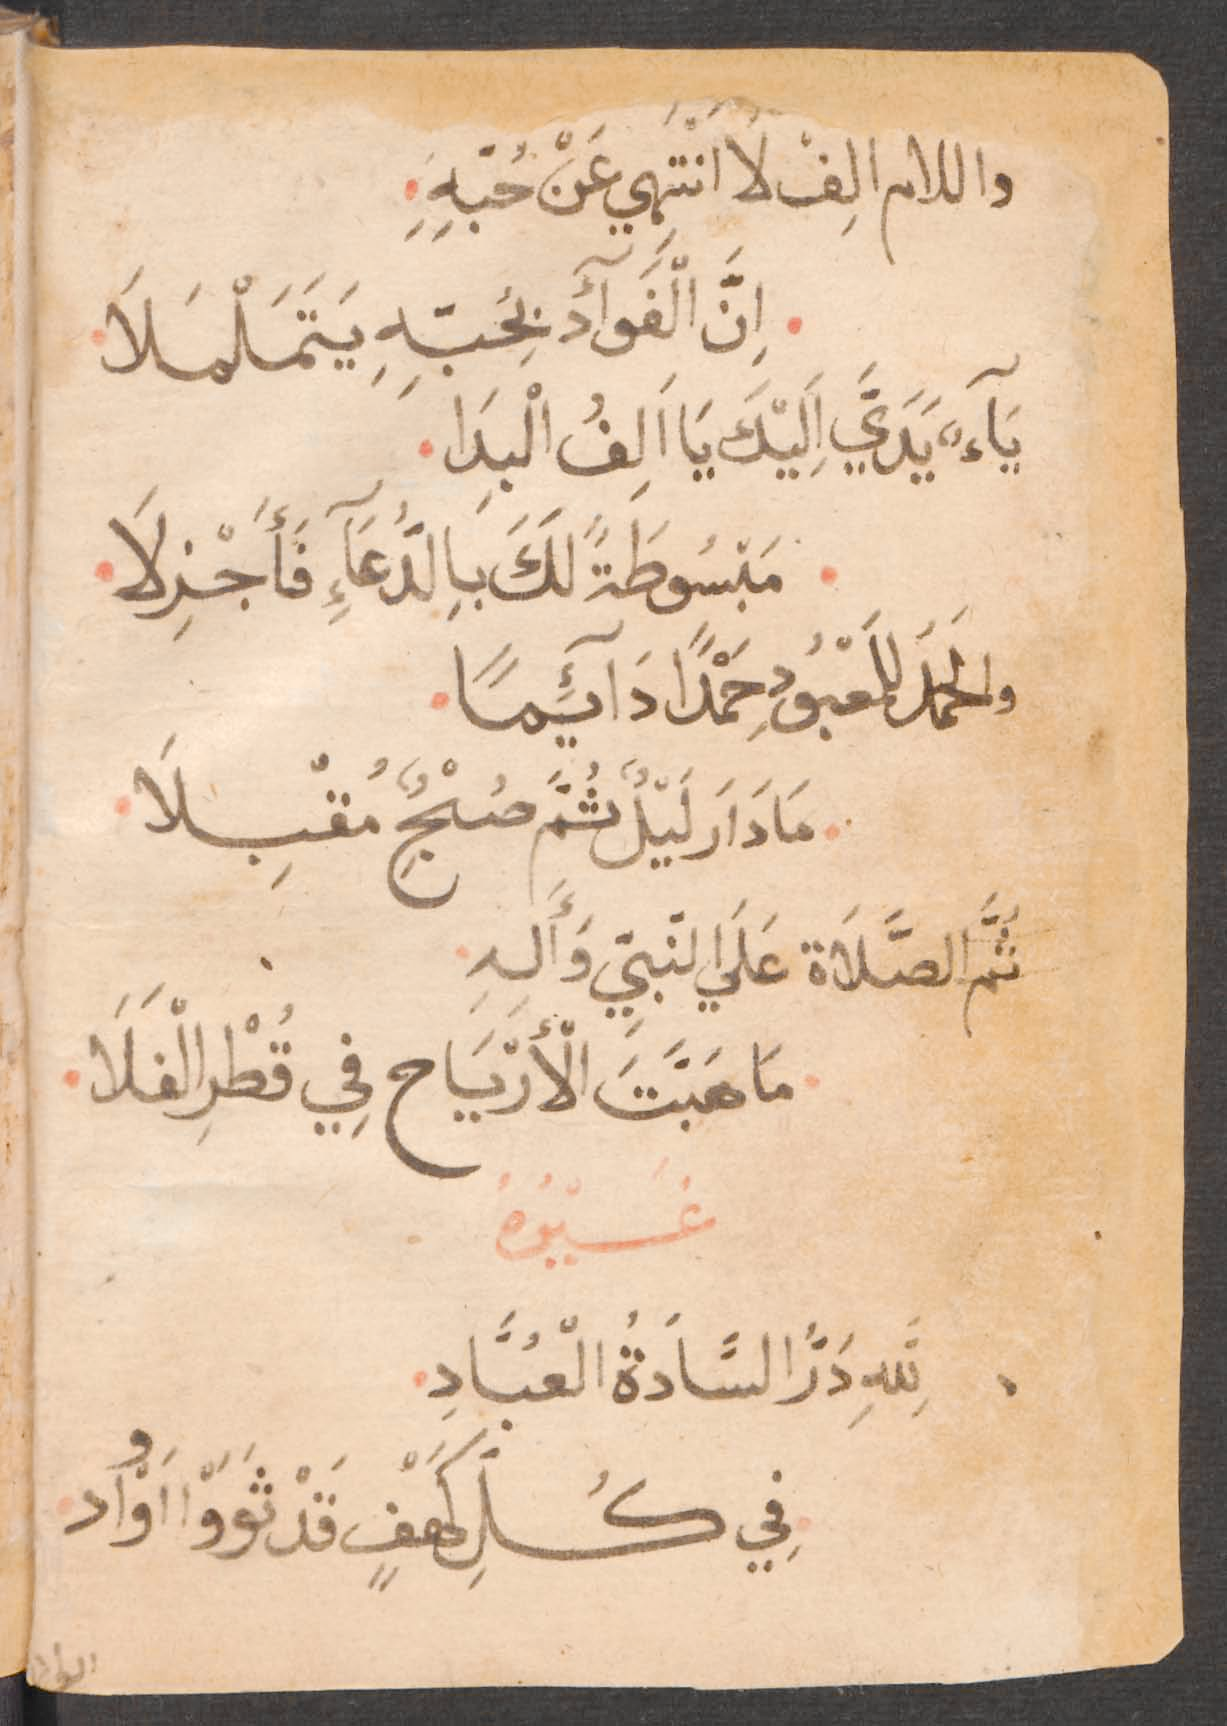 واللام الِفْ لَا اَنْتَهِي عَنْ حُبِّهِ
اِنَّ الْفَوآَدَ بِحُبِّهِ يَتَمَلْمَلَا
يَآءٌ يَدَيَّ اِلَيْكَ يَا اَلِفُ الْبِدَا
مَبْسُوطَةً لَكَ بِالدُّعَآءِ فَأَجْذِلَا
والْحَمْدُ لِلْمَعْبُودِ حَمْدًا دَآئِمًا
مَادَارَ لَيْلٌ ثُمَّ صُبْحٌ مُقْبِلَا
ثُمَّ الصَّلَاة عَلَي النَّبِيّ وَأَلِهِ
مَا هَبَّتَ الْأَرْيَاح فِي قُطْرِ الْفَلَا
غَيْرُهُ
لِلّهِ دَرُّ السَّادَةُ الْعُبَّادِ
فِي كُلِّ كَهْفٍ قَدْ ثَوَوْا اَوْ وَاد